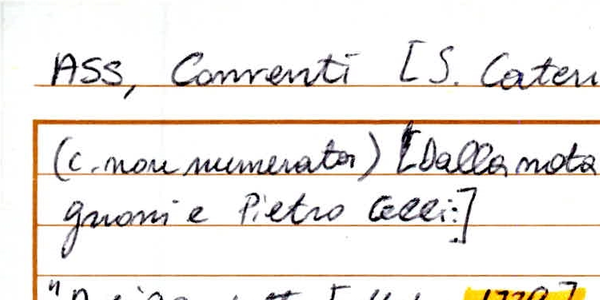 ASS, Conventi [S. Cateri
(c. non numerata) [Dalla nota
gnoni e Pietro Celli:]